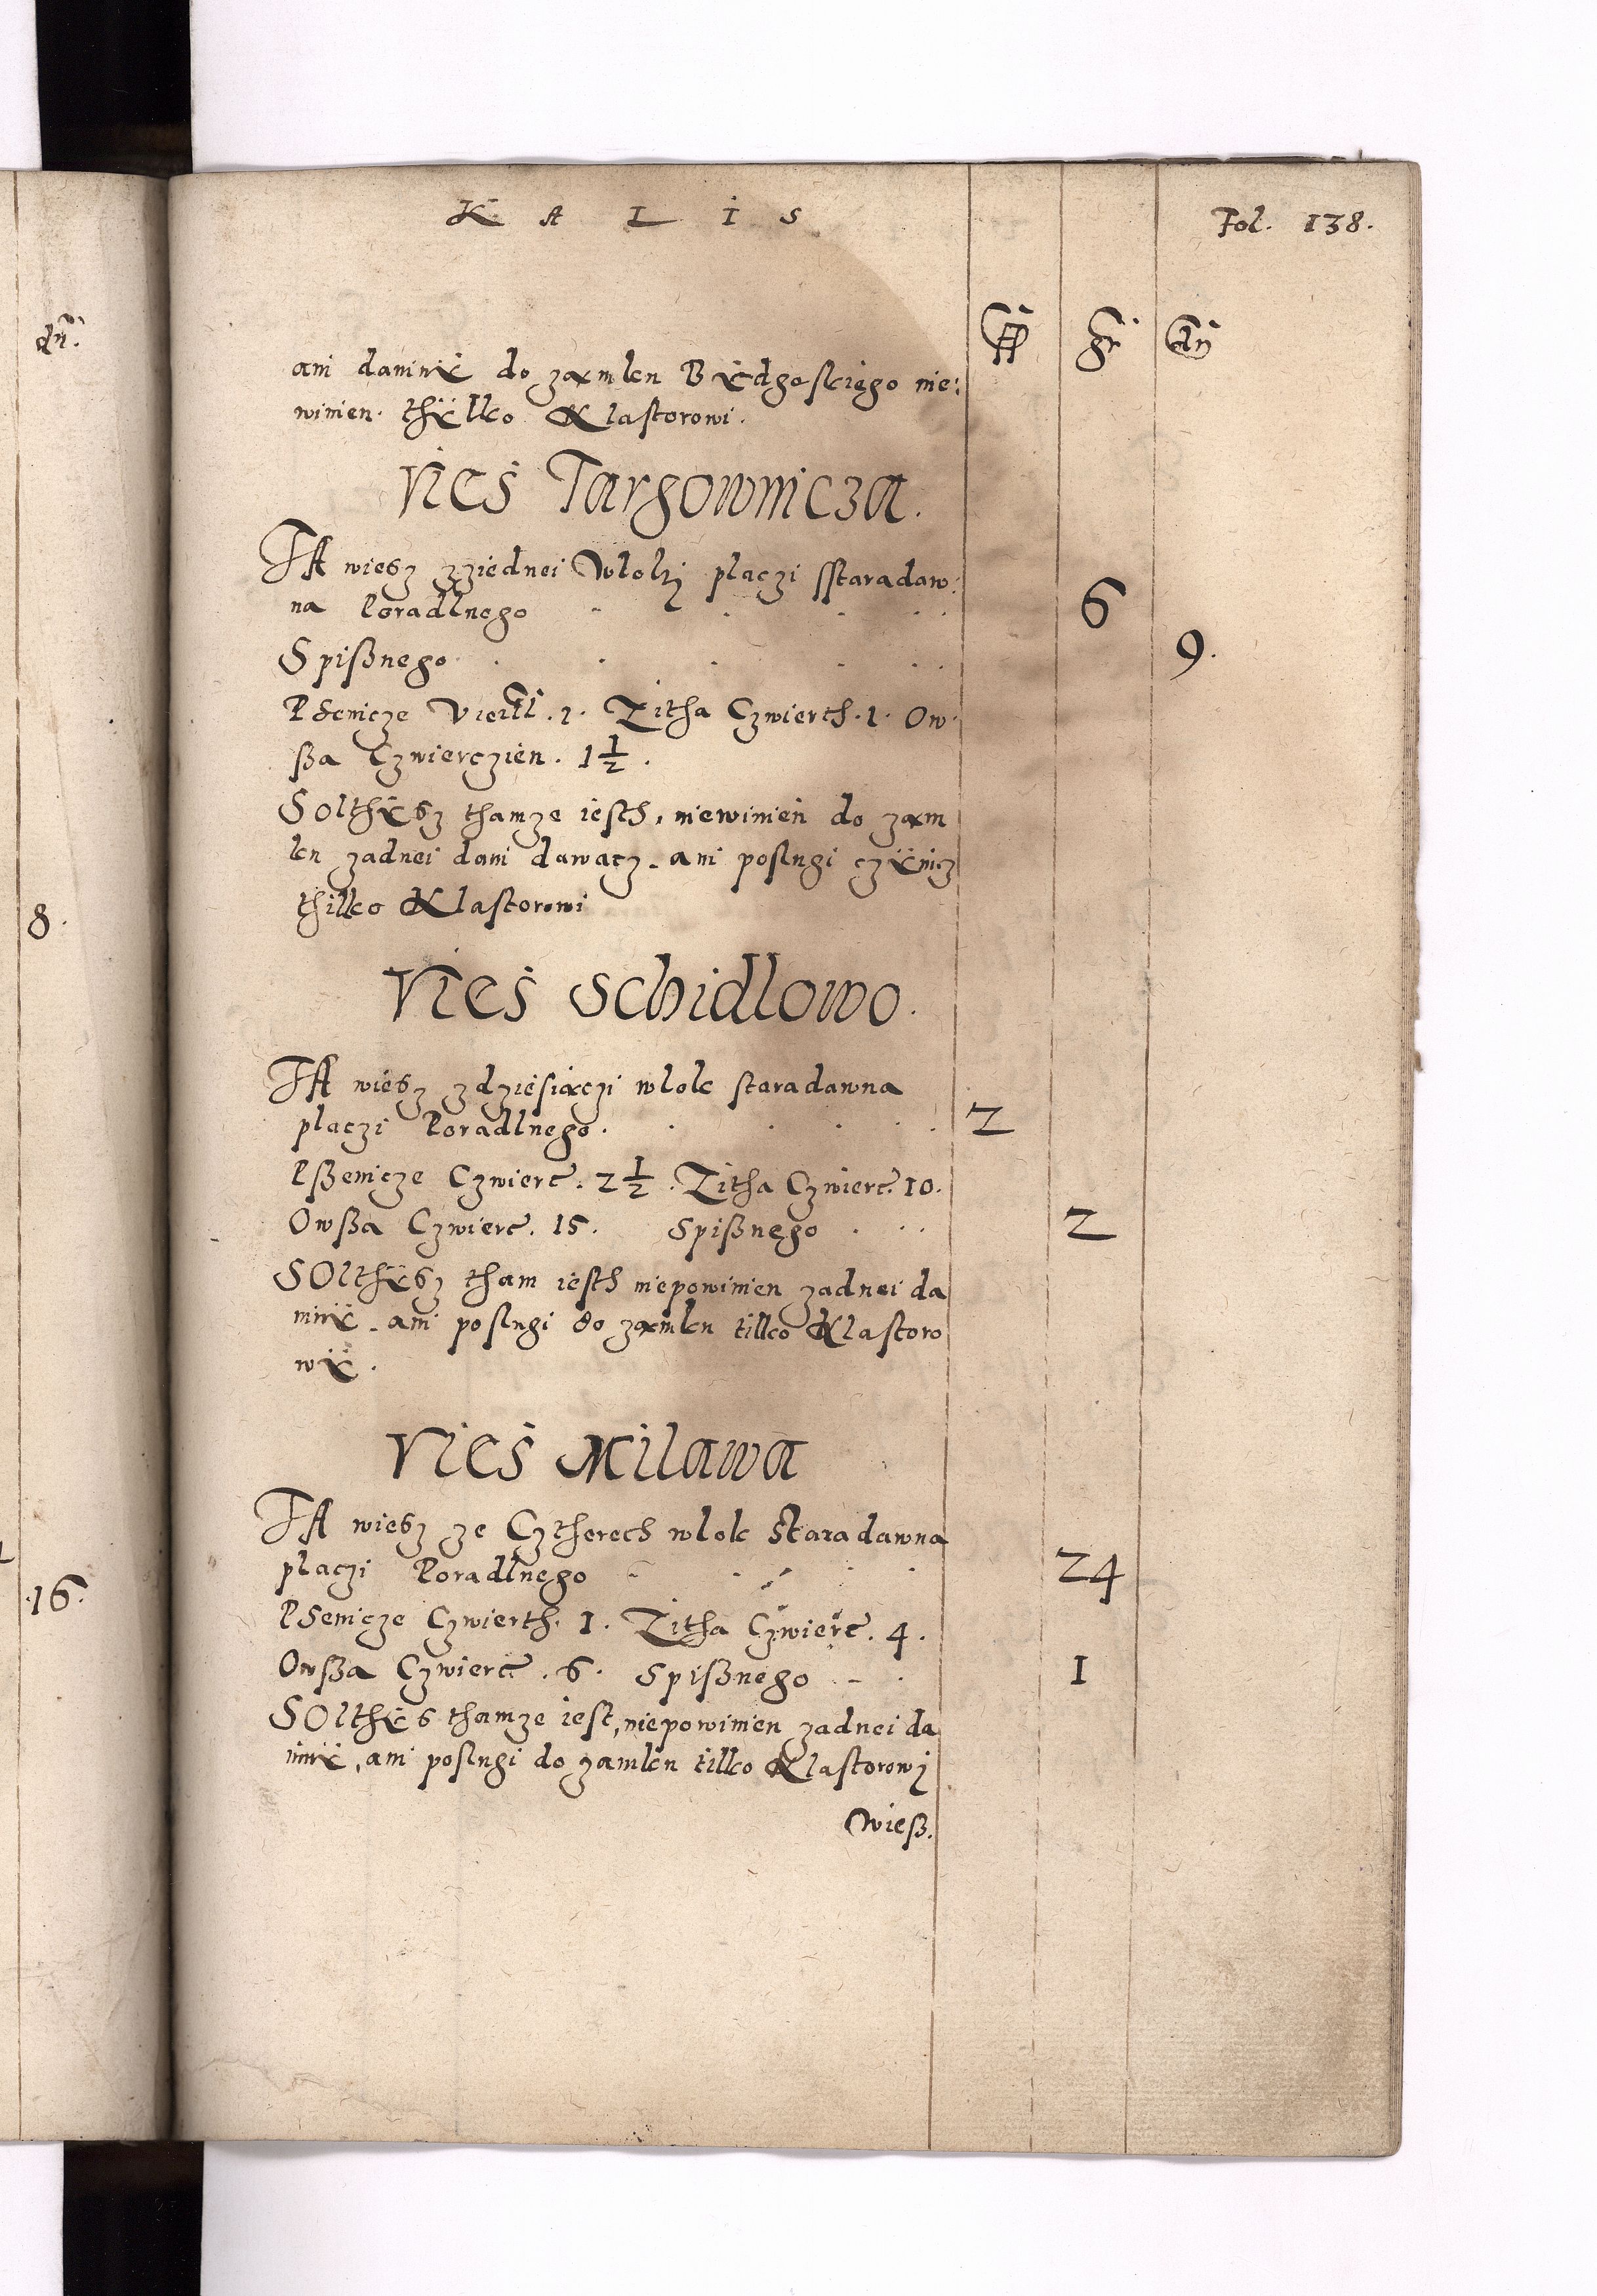 dn.
8.
16.
K A L I S
Fol. 138.
ff gr dn
ani daninÿ do zamku Bÿdgoskiego nie:
winien. thÿlko Klastorowi.
Vies Targownicza.
TA wiesz zziednei Wloki placzi sstaradaw:
na Poradlnego 6
Spißnego 9.
Psenicze Viertl. 1. Zitha Czwierth. 1. Ow:
ßa Czwierczien. 1 1/2.
Solthÿsz thamze iesth, niewinien do zam
ku zadnei dani dawacz. ani poslugi czÿnicz
thilko Klastorowi
Vies Schidlowo.
TA wiesz zdziesiączi wlok staradawna
placzi Poradlnego. 2
Pßenicze Czwiert. 2 1/2. Zitha Czwiert. 10.
Owßa Czwiert. 15. Spißnego 2
SOlthÿsz tham iesth niepowinien zadnei da
ninÿ. ani poslugi do zamku tilko Klastoro
wÿ.
Vies Milawa
TA wiesz ze Cztherech wlok Staradawna
placzi Poradlnego 24
Psenicze Czwierth. 1. Zitha Czwiert. 4.
Owßa Czwiert. 6. Spißnego 1
SOlthÿs thamze iest, niepowinien zadnei da
ninÿ, ani poslugi do zamku tilko Klastorowj
Wieß.